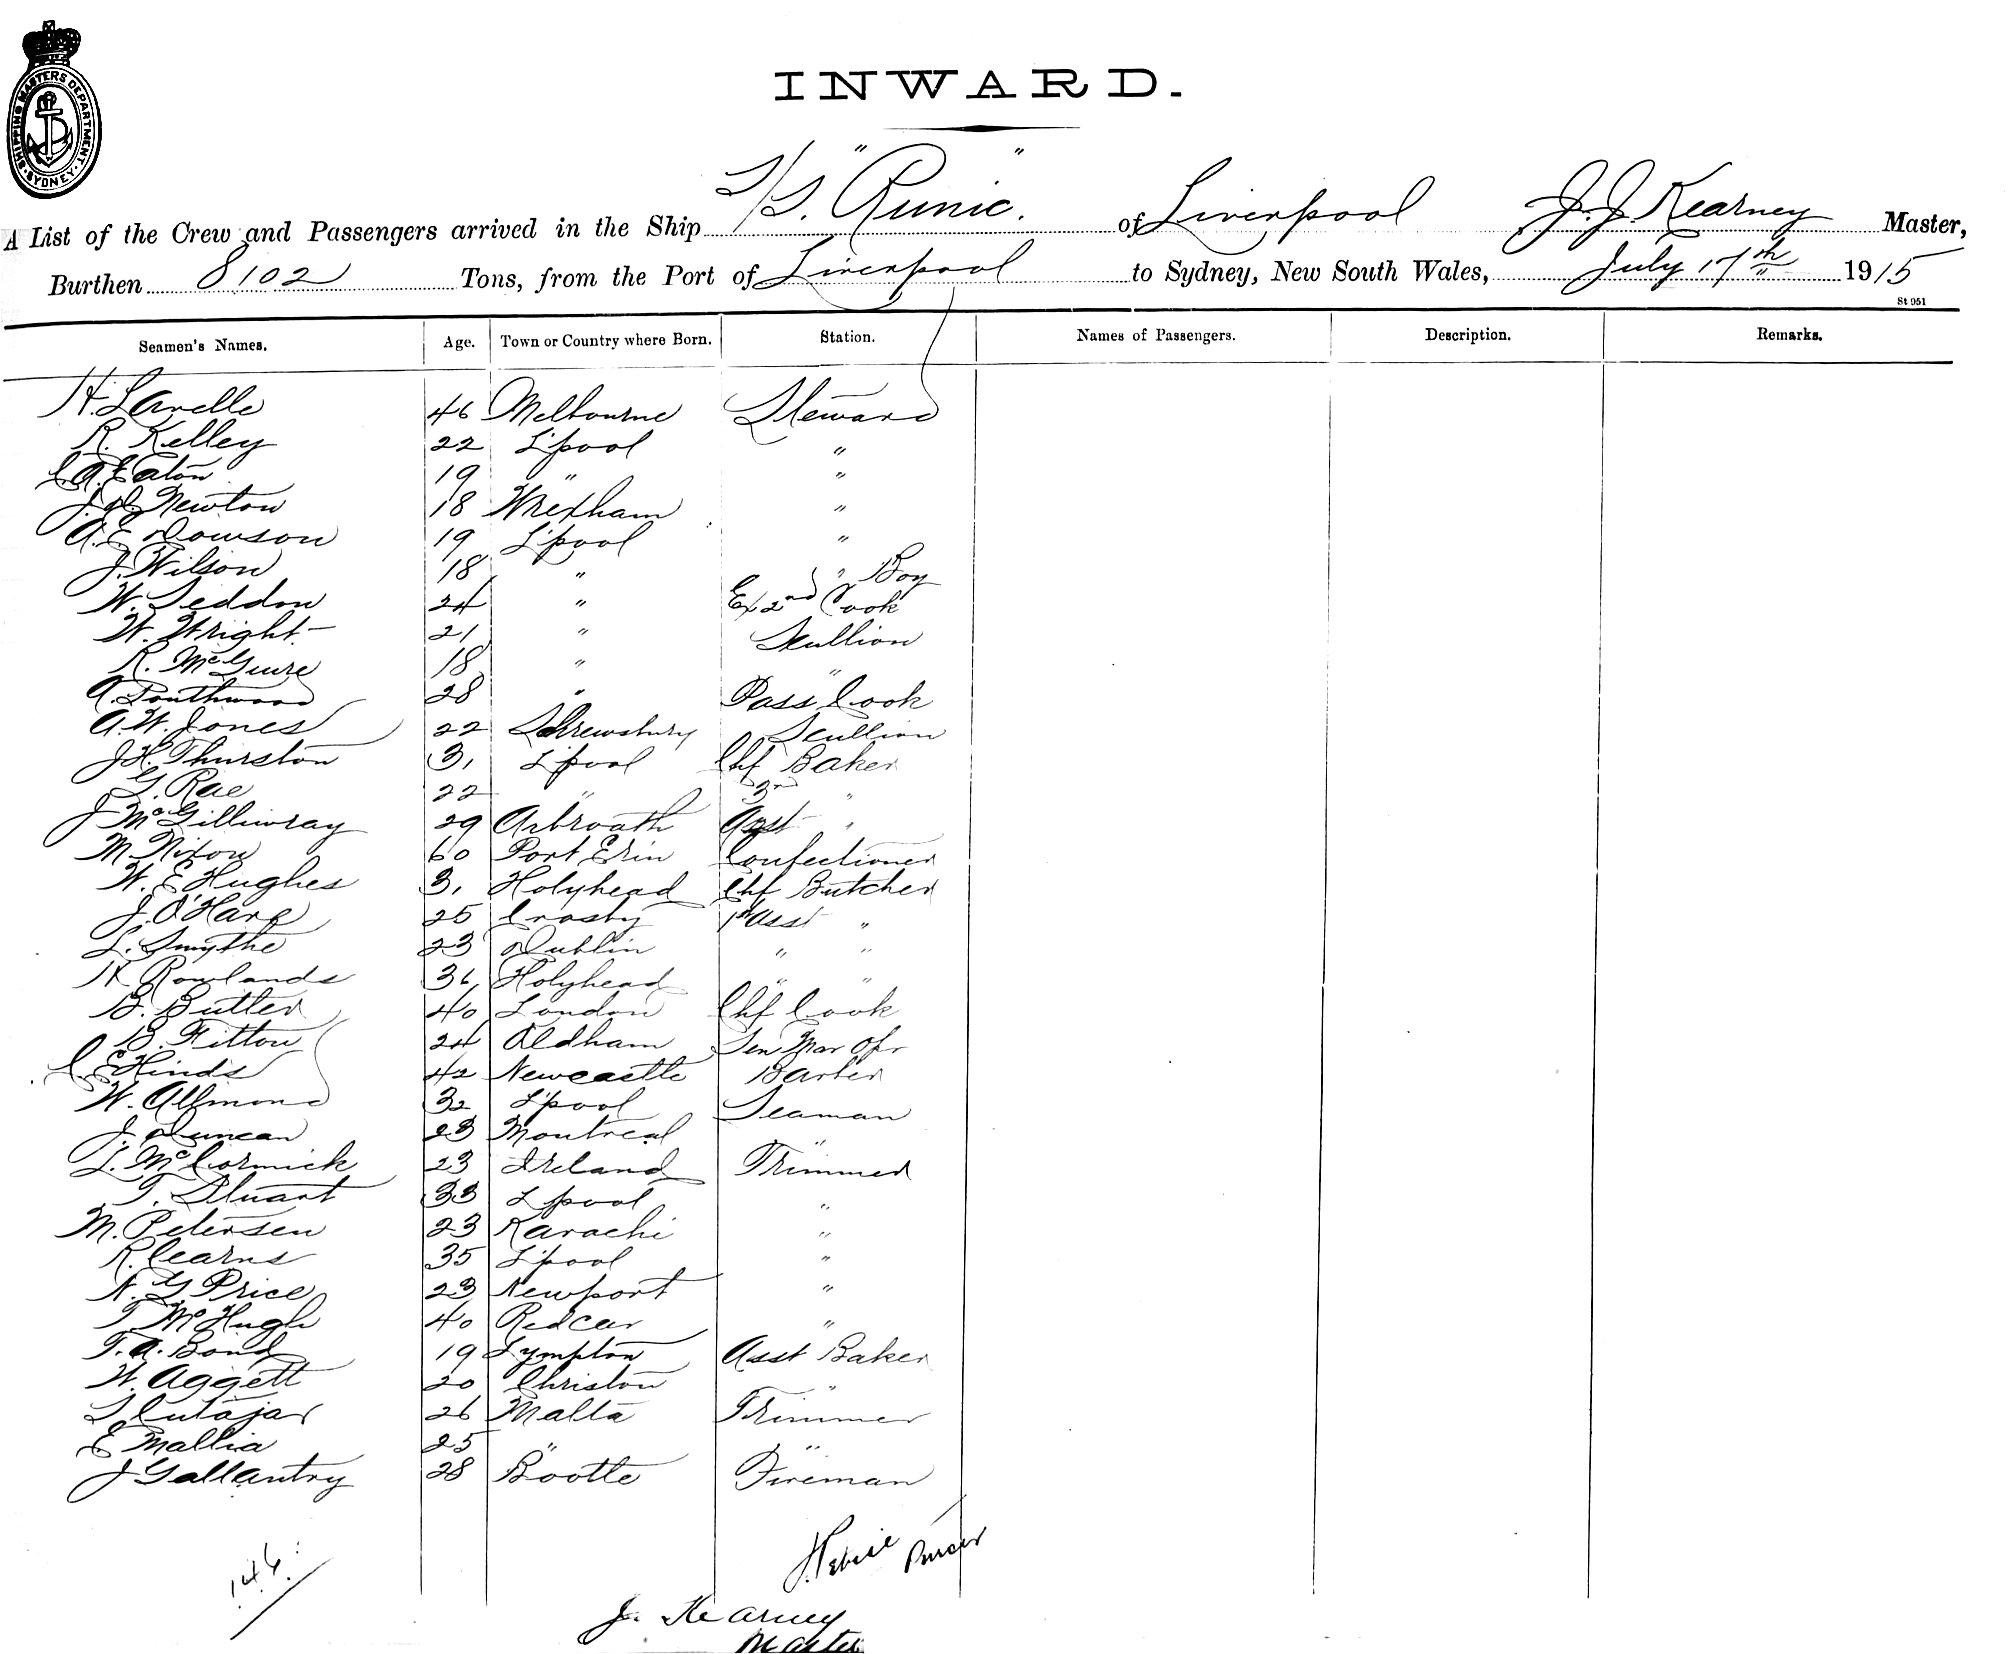 SHIPPING MASTERS DEPARTMENT. SYDNEY.
INWARD.
A List of the Crew and Passengers arrived in the Ship S/S. "Runic". of Liverpool J. J. Kearney Master,
Burthen 8102 Tons, from the Port of Liverpool to Sydney, New South Wales, July 17th 1915
St 951
Seamen's Names. Age. Town or Country where Born. Station. Names of Passengers. Description. Remarks.
H. Lavelle 46 Melbourne Steward
R. Kelley 22 L'pool "
C. A. Eaton 19 " "
J. Newton 18 Wrexham "
A. E. Dowson 19 L'pool "
J. Wilson 18 " " Boy
W. Seddon 24 " Ex 2nd Cook
W. Wright 21 " Scullion
R. McGuire 18 " "
A. Southwood 28 " Pass Cook
A. W. Jones 22 Shrewsbury Scullion
J. H. Thurston 31 L'pool Chf Baker
G. Rae 22 " 3rd "
J. McGilliwray 29 Arbroath Asst "
M. Nixon 60 Port Erin Confectioner
W. E. Hughes 31 Holyhead Chf Butcher
J. O'Hare 25 Crosby 1st Asst "
L. Smythe 23 Dublin " "
H Rowlands 36 Holyhead " "
B. Butler 40 London Chf Cook
B. Fitton 24 Oldham Sen Mar Opr
C. E. Hinds 42 Newcastle Barber
W. Allmond 32 L'pool Seaman
J. Duncan 23 Montreal "
L. McCormick 23 Ireland Trimmer
T. Stuart 33 L'pool "
M. Petersen 23 Karachi "
R. Cearns 35 L'pool "
N. G Price 23 Newport "
T. McHugh 40 Redcar "
T. A. Bond 19 Lympton Asst Baker
W. Aggett 20 Christon "
S Cutajar 26 Malta Trimmer
E Mallia 25 " "
J Gallantry 28 Bootle Fireman
146.
Purser
J. Kearney
Master